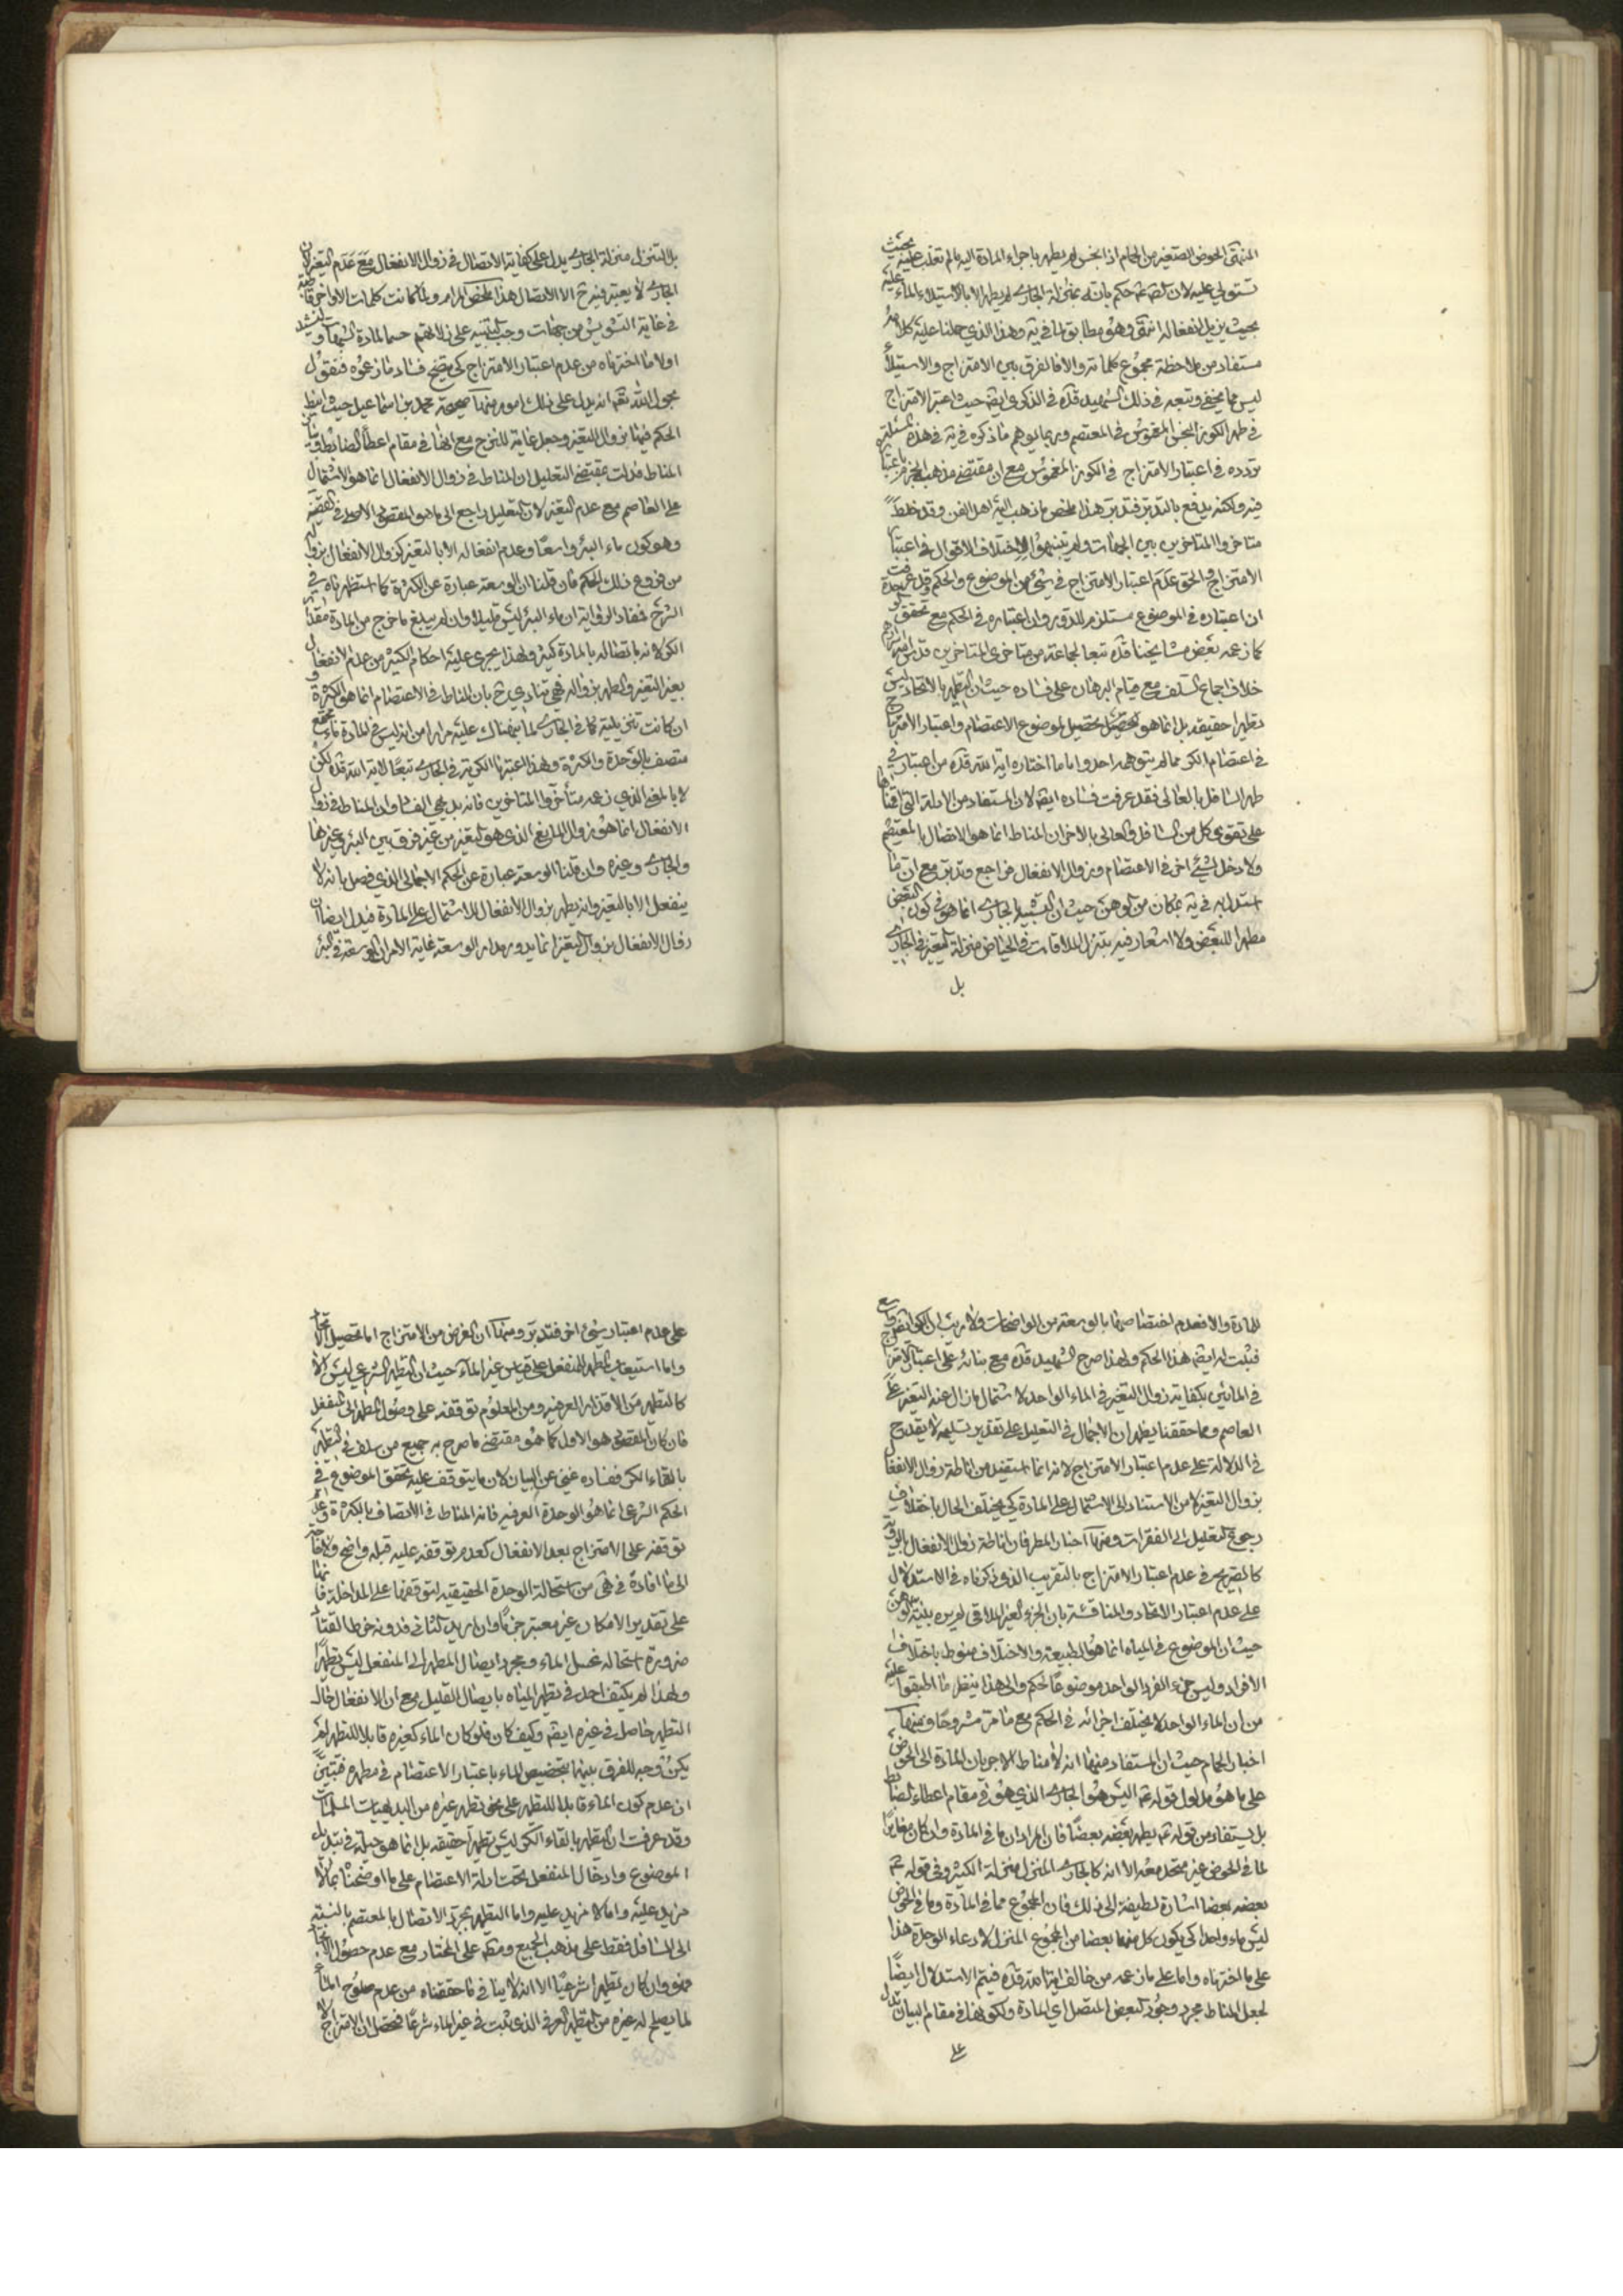 المنتهى الحوض الصغير من الحمام اذا نجس لم يطهر باجراء المادة اليه ما لم تغلب عليه بحيث
تستولي عليه لان الصادق ع حكم بانه بمنزلة الجاري لم يطهر الا بالاستيلاء الماء عليه
بحيث يزيل انفعاله انتهى وهو مطابق لما في يه وهذا الذي حملنا عليه كلامه
مستفاد من ملاحظة مجموع كلماته والا فالفرق بين الامتزاج والاستيلاء
ليس مما يخفى وتبعه في ذلك الشهيد قده في الذكرى ايضا حيث اعتبر الامتزاج
في طهر الكوز النجس المغموس في المعتصم وربما يوهم ما ذكره في يه في هذه المسئلة
تردده في اعتبار الامتزاج في الكوز المغموس مع ان مقتضى مذهبه الجزم باعتبار
فيه ولكنه يدفع بالتدبر فتدبر هذا ملخص ما ذهب اليه اهل الفن وقد خلط
متاخروا المتاخرين بين الجهات ولم يتنبهوا لاختلاف الاقوال في اعتبار
الامتزاج والحق عدم اعتبار الامتزاج في شيء من الموضوع والحكم قد عرفت
ان اعتباره في الموضوع مستلزم للدور وان اعتباره في الحكم مع تحقق الوحدة
كما زعمه بعض مشايخنا قده تبعا لجماعة من متاخري المتاخرين قدس اسرارهم
خلاف اجماع السلف مع قيام البرهان على فساده حيث ان التطهر بالاتحاد ليس
تطهرا حقيقة بل انما هو تحصيل لموضوع الاعتصام واعتبار الامتزاج
في اعتصام الكر مما لم يتوهمه احد واما ما اختاره اية الله قده من اعتباره في
طهر السافل بالعالي فقد عرفت فساده ايضا لان المستفاد من الادلة التي اقمناها
على تقوي كل من السافل والعالي بالاخر ان المناط انما هو الاتصال بالمعتصم
ولا دخل لشيء اخر في الاعتصام وزوال الانفعال فراجع وتدبر مع ان ما
استدل به في يه بمكان من الوهن حيث ان التشبيه بالجاري انما هو في كون البعض
مطهرا للبعض ولا اشعار فيه بتنزل الملاقات في الحياض منزلة التغير في الجاري
بل
بل التنزل منزلة الجاري يدل على كفاية الاتصال في زوال الانفعال مع عدم التغير لان
الجاري لا يعتبر فيه ح الا الاتصال هذا ملخص المرام ولما كانت كلمات الاواخر قاصرة
في غاية التشويش من جهات وجب التنبيه على زلاتهم حسما لمادة الشبهة
اولا ما اخترناه من عدم اعتبار الامتزاج كي يتضح فساد ما زعموه فنقول
بحول الله تعه انه يدل على ذلك امور منها صحيحة محمد بن اسماعيل حيث انيط
الحكم فيها بزوال التغير وجعل غاية للنزح مع انها في مقام اعطاء الضابط وبيان
المناط فدلت بمقتضى التعليل ان المناط في زوال الانفعال انما هو الاشتمال
على العاصم مع عدم التغير لان التعليل راجع الى ما هو المقصود الاصلي في القضية
وهو كون ماء البئر واسعا وعدم انفعاله الا بالتغير كزوال الانفعال بزواله
من فروع ذلك الحكم فان قلنا ان الوسعة عبارة عن الكثرة كما استظهرناه في
الشرح فمفاد الرواية ان ماء البئر ليس قليلا وان لم يبلغ ما خرج من المادة مقدار
الكر لانه باتصاله بالمادة كثير ولهذا يجري عليه احكام الكثير من عدم الانفعال
بغير التغير والطهر بزواله فهي تنادي ح بان المناط في الاعتصام انما هو الكثرة و
ان كانت تنزيلية كما في الجاري لما نبهناك عليه مرارا من انه ليس في المادة ماء مجتمع
متصف بالوحدة والكثرة ولهذا اعتبرنا الكرية في الجاري تبعا لاية الله قده لكن
لا بالمعنى الذي زعمه متأخروا المتاخرين فانه بديهي الفساد وان المناط في زوال
الانفعال انما هو زوال المانع الذي هو التغير من غير فرق بين البئر وغيرها
والجاري وغيره وان قلنا الوسعة عبارة عن الحكم الاجمالي الذي فصل بانه لا
ينفعل الا بالتغير وانه يطهر بزوال الانفعال للاشتمال على المادة فيدل ايضا ان
زوال الانفعال بزوال التغير انما يدور مدار الوسعة غاية الامر ان الوسعة في البئر
للمادة والا فعدم اختصاصها بالوسعة من الواضحات ولا ريب ان الكر ايضا واسع
فيثبت له ايضا هذا الحكم ولهذا صرح الشهيد قده مع بنائه على اعتبار الامتزاج
في المائين بكفاية زوال التغير في الماء الواحد لاشتمال ما زال عنه التغير على
العاصم ومما حققنا يظهر ان الاجمال في التعليل على تقدير تسليمه لا يقدح
في الدلالة على عدم اعتبار الامتزاج لانه انما استفيد من اناطة زوال الانفعال
بزوال التغير لا من الاستناد الى الاشتمال على المادة كي يختلف الحال باختلاف
رجوع التعليل الى الفقرات ومنها اخبار المطر فان اناطة زوال الانفعال بالرؤية
كالصريح في عدم اعتبار الامتزاج بالتقريب الذي ذكرناه في الاستدلال
على عدم اعتبار الاتحاد والمناقشة بان الجزء الغير الملاقي لم يره بينة الوهن
حيث ان الموضوع في المياه انما هو الطبيعة والاختلاف منوط باختلاف
الافراد وليس جزء الفرد الواحد موضوعا لحكم والى هذا ينظر ما اطبقوا عليه
من ان الماء الواحد لا يختلف اجزائه في الحكم مع ما مر مشروحا ومنها
اخبار الحمام حيث ان المستفاد منها انه لا مناط الا جريان المادة الى الحوض
على ما هو مدلول قوله ع اليس هو الجاري الذي هو في مقام اعطاء الضابط
بل يستفاد من قوله ع يطهر بعضه بعضا فان المراد ان ما في المادة وان كان مغايرا
لما في الحوض غير متحد معه الا انه كالجاري المنزل منزلة الكثير وفي قوله ع
بعضه بعضا اشارة لطيفة الى ذلك فان المجموع مما في المادة وما في الحوض
ليس ماء واحدا كي يكون كل منهما بعضا من المجموع المنزل لادعاء الوحدة هذا
على ما اخترناه واما على ما زعمه من خالف اية الله قده فيتم الاستدلال ايضا
لجعل المناط مجرد وجود البعض المتصل اي المادة ولكونها في مقام البيان تدل
على
على عدم اعتبار شيء اخر فتدبر ومنها ان الغرض من الامتزاج اما تحصيل الاتحاد
واما استيعاب المطهر للمنفعل على قياس غير الماء حيث ان التطهر الشرعي ليس الا
كالتطهر من الاقذار العرفية ومن المعلوم توقفه على وصول المطهر الى المنفعل
فان كان المقصود هو الاول كما هو مقتضى ما صرح به جميع من سلف في التطهر
بالقاء الكر ففساده غني عن البيان لان ما يتوقف عليه تحقق الموضوع في
الحكم الشرعي انما هو الوحدة العرفية فانه المناط في الاتصاف بالكثرة وعدم
توقفه على الامتزاج بعد الانفعال كعدم توقفه عليه قبله واضح ولا حاجة
الى ما افاده في هى من استحالة الوحدة الحقيقية لتوقفها على المداخلة فانها
على تقدير الامكان غير معتبر جزما وان اريد الثاني فدونه خرط القتاد
ضرورة استحالة غسل الماء ومجرد ايصال المطهر الى المنفعل ليس تطهرا
ولهذا لم يكتف احد في تطهر المياه بايصال القليل مع ان الانفعال حال
التطهر حاصل في غيره ايضا وكيف كان فلو كان الماء كغيره قابلا للتطهر لم
يكن وجه للفرق بينهما بتخصيص الماء باعتبار الاعتصام في مطهره فتبين
ان عدم كون الماء قابلا للتطهر على نحو تطهر غيره من البديهيات المسلمات
وقد عرفت ان التطهر بالقاء الكر ليس تطهرا حقيقة بل انما هو حيلة في تبديل
الموضوع وادخال المنفعل تحت ادلة الاعتصام على ما اوضحناه بما لا
مزيد عليه واما لا مزيد عليه واما التطهر بمجرد الاتصال بالمعتصم بالنسبة
الى السافل فقط على مذهب الجميع ومطلقا على المختار مع عدم حصول الاتحاد
فهو وان كان تطهرا شرعيا الا انه لا ينافي ما حققناه من عدم صلوح الماء
لما يصلح له غيره من التطهر العرفي الذي ثبت في غير الماء شرعا فتحصل ان الامتزاج